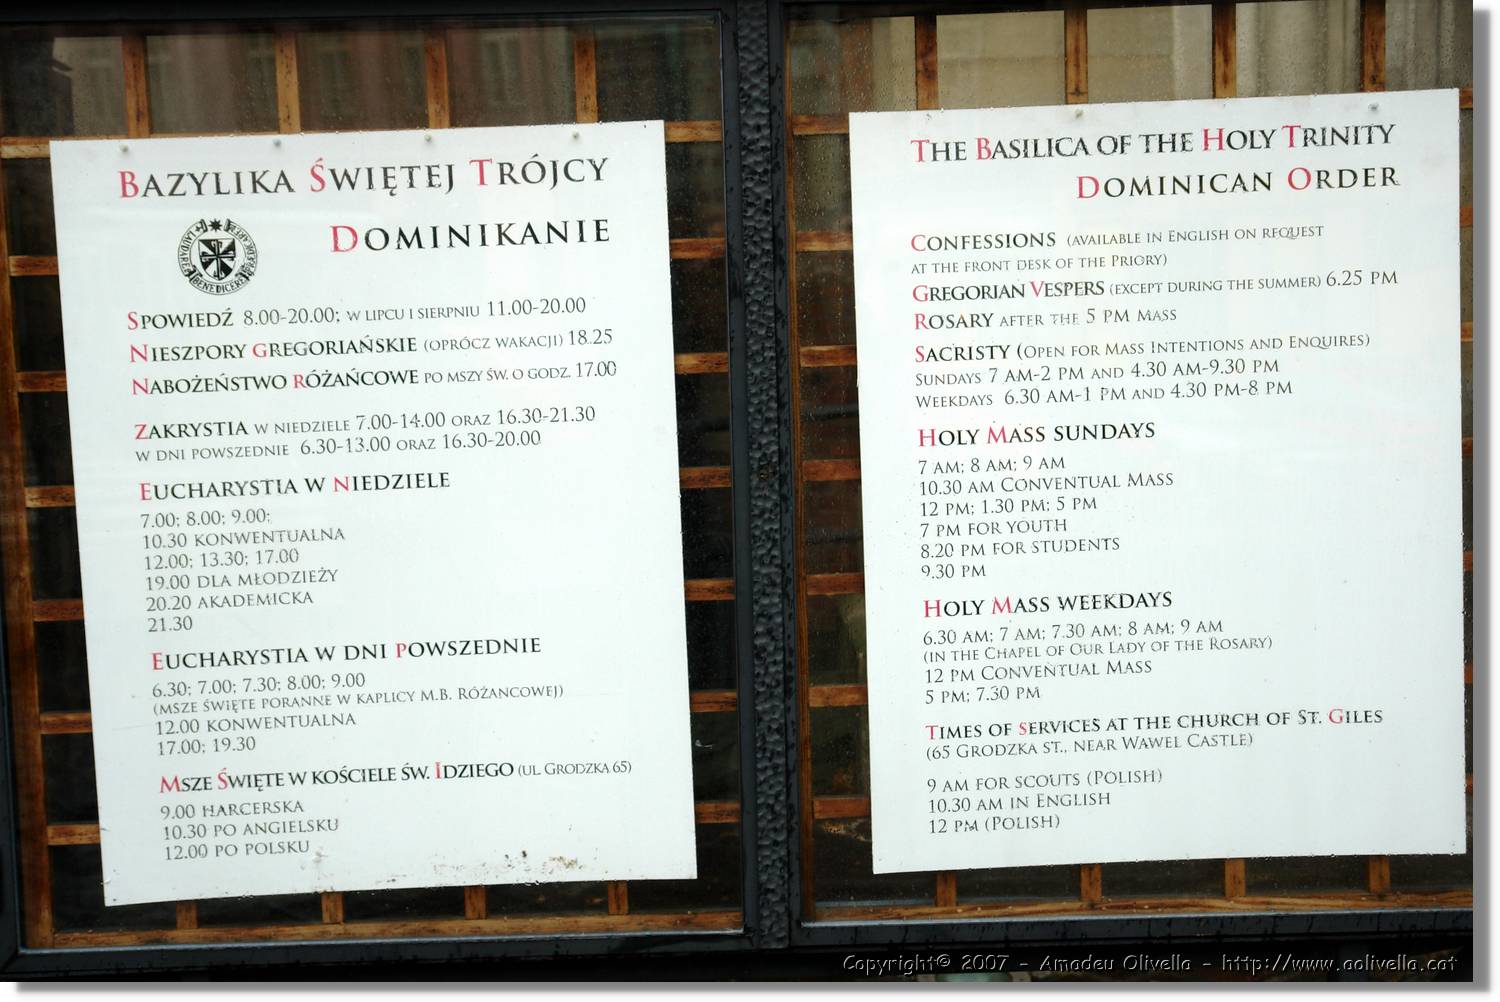 BAZYLIKA ŚWIĘTEJ TRÓJCY
DOMINIKANIE
LAUDARE BENEDICERE PRAEDICARE
SPOWIEDŹ 8.00-20.00; W LIPCU I SIERPNIU 11.00-20.00
NIESZPORY GREGORIAŃSKIE (OPRÓCZ WAKACJI) 18.25
NABOŻEŃSTWO RÓŻAŃCOWE PO MSZY ŚW. O GODZ. 17.00
ZAKRYSTIA W NIEDZIELE 7.00-14.00 ORAZ 16.30-21.30
W DNI POWSZEDNIE 6.30-13.00 ORAZ 16.30-20.00
EUCHARYSTIA W NIEDZIELE
7.00; 8.00; 9.00;
10.30 KONWENTUALNA
12.00; 13.30; 17.00
19.00 DLA MŁODZIEŻY
20.20 AKADEMICKA
21.30
EUCHARYSTIA W DNI POWSZEDNIE
6.30; 7.00; 7.30; 8.00; 9.00
(MSZE ŚWIĘTE PORANNE W KAPLICY M.B. RÓŻANCOWEJ)
12.00 KONWENTUALNA
17.00; 19.30
MSZE ŚWIĘTE W KOŚCIELE ŚW. IDZIEGO (UL. GRODZKA 65)
9.00 HARCERSKA
10.30 PO ANGIELSKU
12.00 PO POLSKU
THE BASILICA OF THE HOLY TRINITY
DOMINICAN ORDER
CONFESSIONS (AVAILABLE IN ENGLISH ON REQUEST
AT THE FRONT DESK OF THE PRIORY)
GREGORIAN VESPERS (EXCEPT DURING THE SUMMER) 6.25 PM
ROSARY AFTER THE 5 PM MASS
SACRISTY (OPEN FOR MASS INTENTIONS AND ENQUIRES)
SUNDAYS 7 AM-2 PM AND 4.30 AM-9.30 PM
WEEKDAYS 6.30 AM-1 PM AND 4.30 PM-8 PM
HOLY MASS SUNDAYS
7 AM; 8 AM; 9 AM
10.30 AM CONVENTUAL MASS
12 PM; 1.30 PM; 5 PM
7 PM FOR YOUTH
8.20 PM FOR STUDENTS
9.30 PM
HOLY MASS WEEKDAYS
6.30 AM; 7 AM; 7.30 AM; 8 AM; 9 AM
(IN THE CHAPEL OF OUR LADY OF THE ROSARY)
12 PM CONVENTUAL MASS
5 PM; 7.30 PM
TIMES OF SERVICES AT THE CHURCH OF ST. GILES
(65 GRODZKA ST., NEAR WAWEL CASTLE)
9 AM FOR SCOUTS (POLISH)
10.30 AM IN ENGLISH
12 PM (POLISH)
Copyright© 2007 - Amadeu Olivella - http://www.aolivella.cat